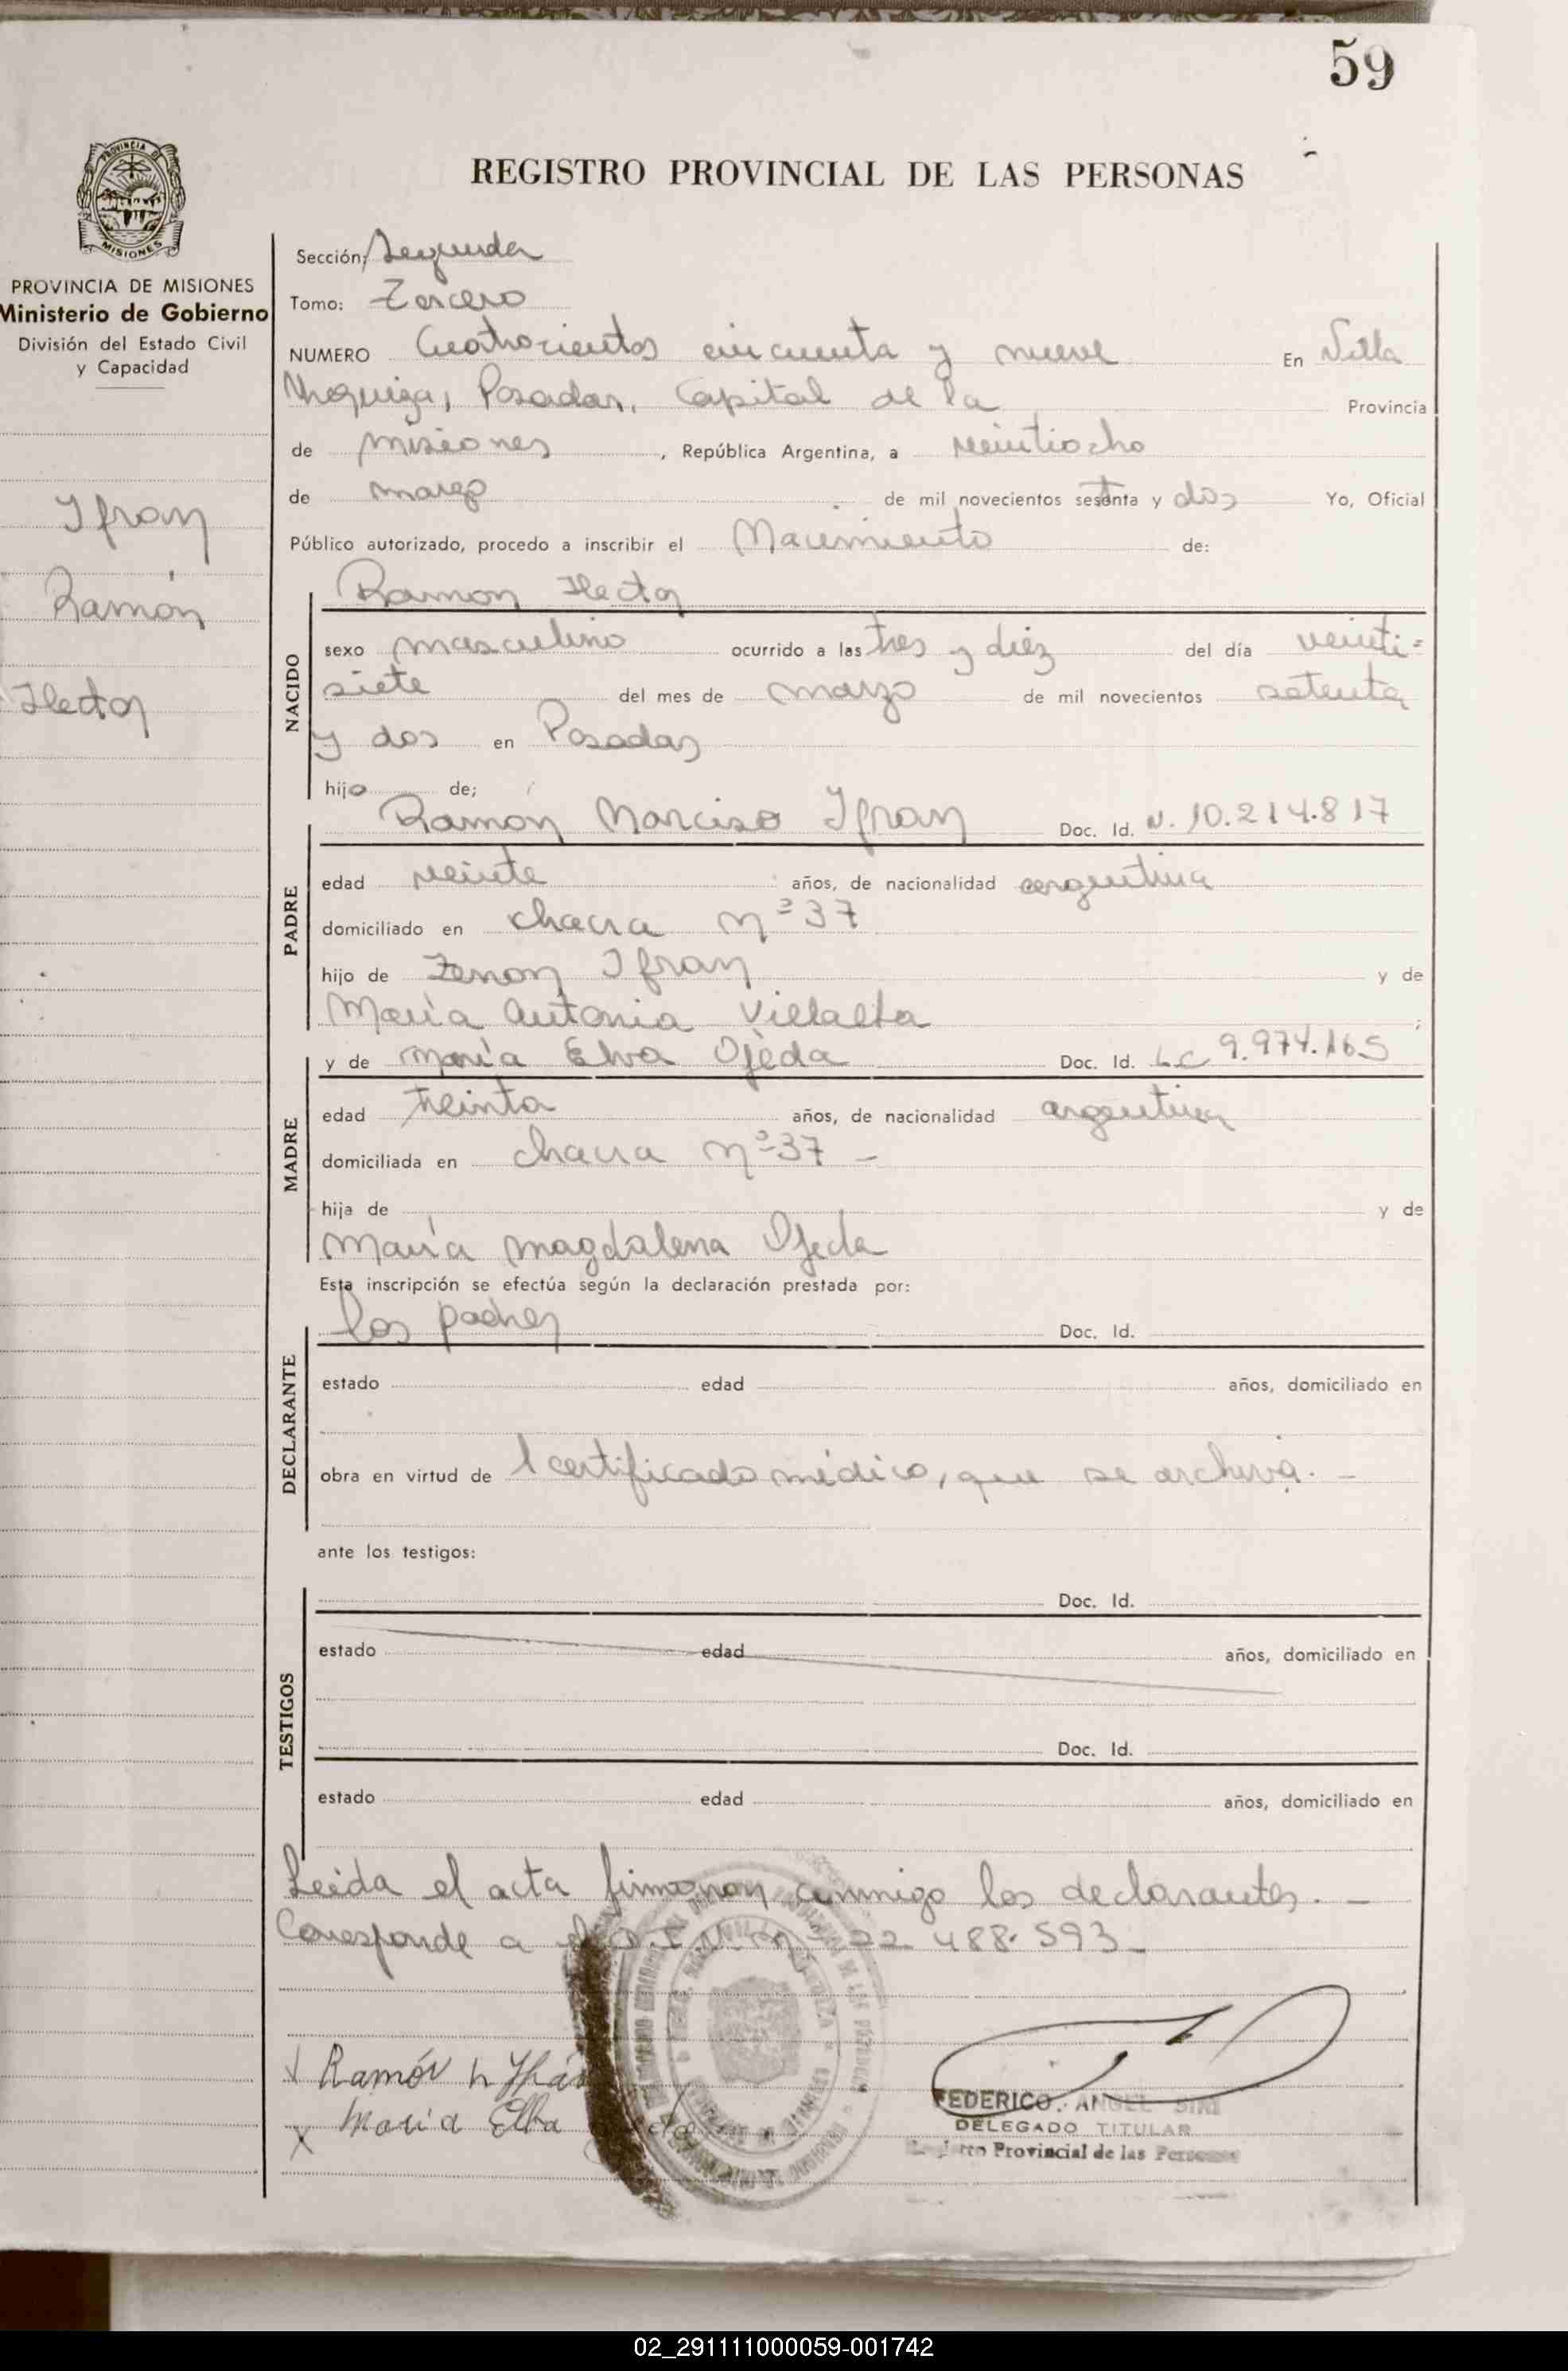 59
REGISTRO PROVINCIAL DE LAS PERSONAS
PROVINCIA DE MISIONES
PROVINCIA DE MISIONES
Ministerio de Gobierno
División del Estado Civil
y Capacidad
Ifran
Ramón
Hector
Sección: Segunda
Tomo: Tercero
NUMERO Cuatrocientos cincuenta y nueve En Villa
Urquiza, Posadas, Capital de la Provincia
de misiones, República Argentina, a veintiocho
de marzo de mil novecientos setenta y dos Yo, Oficial
Público autorizado, procedo a inscribir el Nacimiento de:
NACIDO
Ramon Hector
sexo masculino ocurrido a las tres y diez del día veinti=
siete del mes de marzo de mil novecientos setenta
y dos en Posadas
hijo de;
PADRE
Ramón Narciso Ifran Doc. Id. N. 10.214.817
edad veinte años, de nacionalidad argentina
domiciliado en chacra nº 37
hijo de Zenon Ifran y de
María Antonia Villalba;
MADRE
y de María Elva Ojeda Doc. Id. LC 9.974.165
edad treinta años, de nacionalidad argentina
domiciliada en chacra nº 37 –
hija de y de
María magdalena Ojeda
Esta inscripción se efectúa según la declaración prestada por:
DECLARANTE
los padres Doc. Id.
estado edad años, domiciliado en
obra en virtud de 1 certificado médico, que se archiva. –
ante los testigos:
TESTIGOS
Doc. Id.
estado edad años, domiciliado en
Doc. Id.
estado edad años, domiciliado en
Leída el acta firmaron conmigo los declarantes. –
Corresponde a el D.I.N. nº 22 488.593 –
Ramón N Ifrán
María Elba
FEDERICO ANGEL SIRI
DELEGADO TITULAR
Registro Provincial de las Personas
02_291111000059-001742